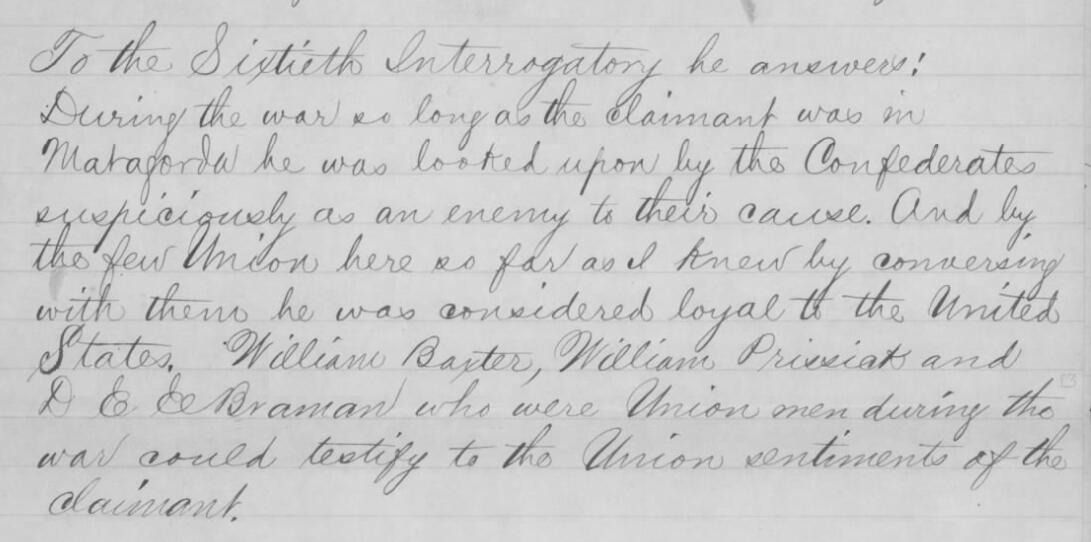 To the Sixtieth Interrogatory he answers:
During the war so long as the claimant was in
Matagorda he was looked upon by the Confederates
suspiciously as an enemy to their cause. And by
the few Union here so far as I knew by conversing
with them he was considered loyal to the United
States. William Baxter, William Prissick and
D E E Braman who were Union men during the
war could testify to the Union sentiments of the
claimant.